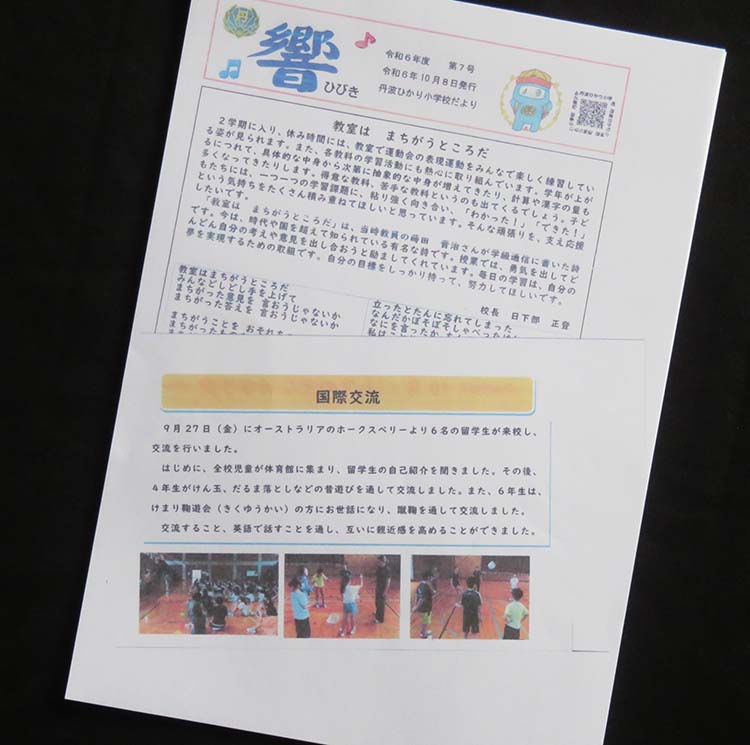 響
ひびき
令和6年度 第7号
令和6年10月8日発行
丹波ひかり小学校だより
教室は まちがうところだ
2学期に入り、休み時間には、教室で運動会の表現運動をみんなで楽しく練習してい
る姿が見られます。また、各教科の学習活動にも熱心に取り組んでいます。学年が上が
るにつれて、具体的な中身から次第に抽象的な中身が増えてきたり、計算や漢字の量も
多くなってきたりします。得意な教科、苦手な教科というのも出てくるでしょう。子ど
もたちには、一つ一つの学習課題に、粘り強く向き合い、「わかった！」「できた！」
という気持ちをたくさん積み重ねてほしいと思っています。そんな頑張りを、支え応援
したいです。
「教室は まちがうところだ」は、当時教員の蒔田 晋治さんが学級通信に書いた詩
です。今は、時代や国を超えて知られている有名な詩です。授業では、勇気を出してど
んどん自分の考えや意見を出し合おうと励ましてくれています。毎日の学習は、自分の
夢を実現するための取組です。自分の目標をしっかり持って、努力してほしいです。
校長 日下部 正登
教室はまちがうところだ
みんなどしどし手を上げて
まちがった意見を 言おうじゃないか
まちがった答えを 言おうじゃないか
まちがうことを おそれ
立ったとたんに忘れてしまった
なんだかぼそぼそしゃべった
なにを言ったか
国際交流
9月27日（金）にオーストラリアのホークスベリーより6名の留学生が来校し、
交流を行いました。
はじめに、全校児童が体育館に集まり、留学生の自己紹介を聞きました。その後、
4年生がけん玉、だるま落としなどの昔遊びを通して交流しました。また、6年生は、
けまり鞠遊会（きくゆうかい）の方にお世話になり、蹴鞠を通して交流しました。
交流すること、英語で話すことを通し、互いに親近感を高めることができました。